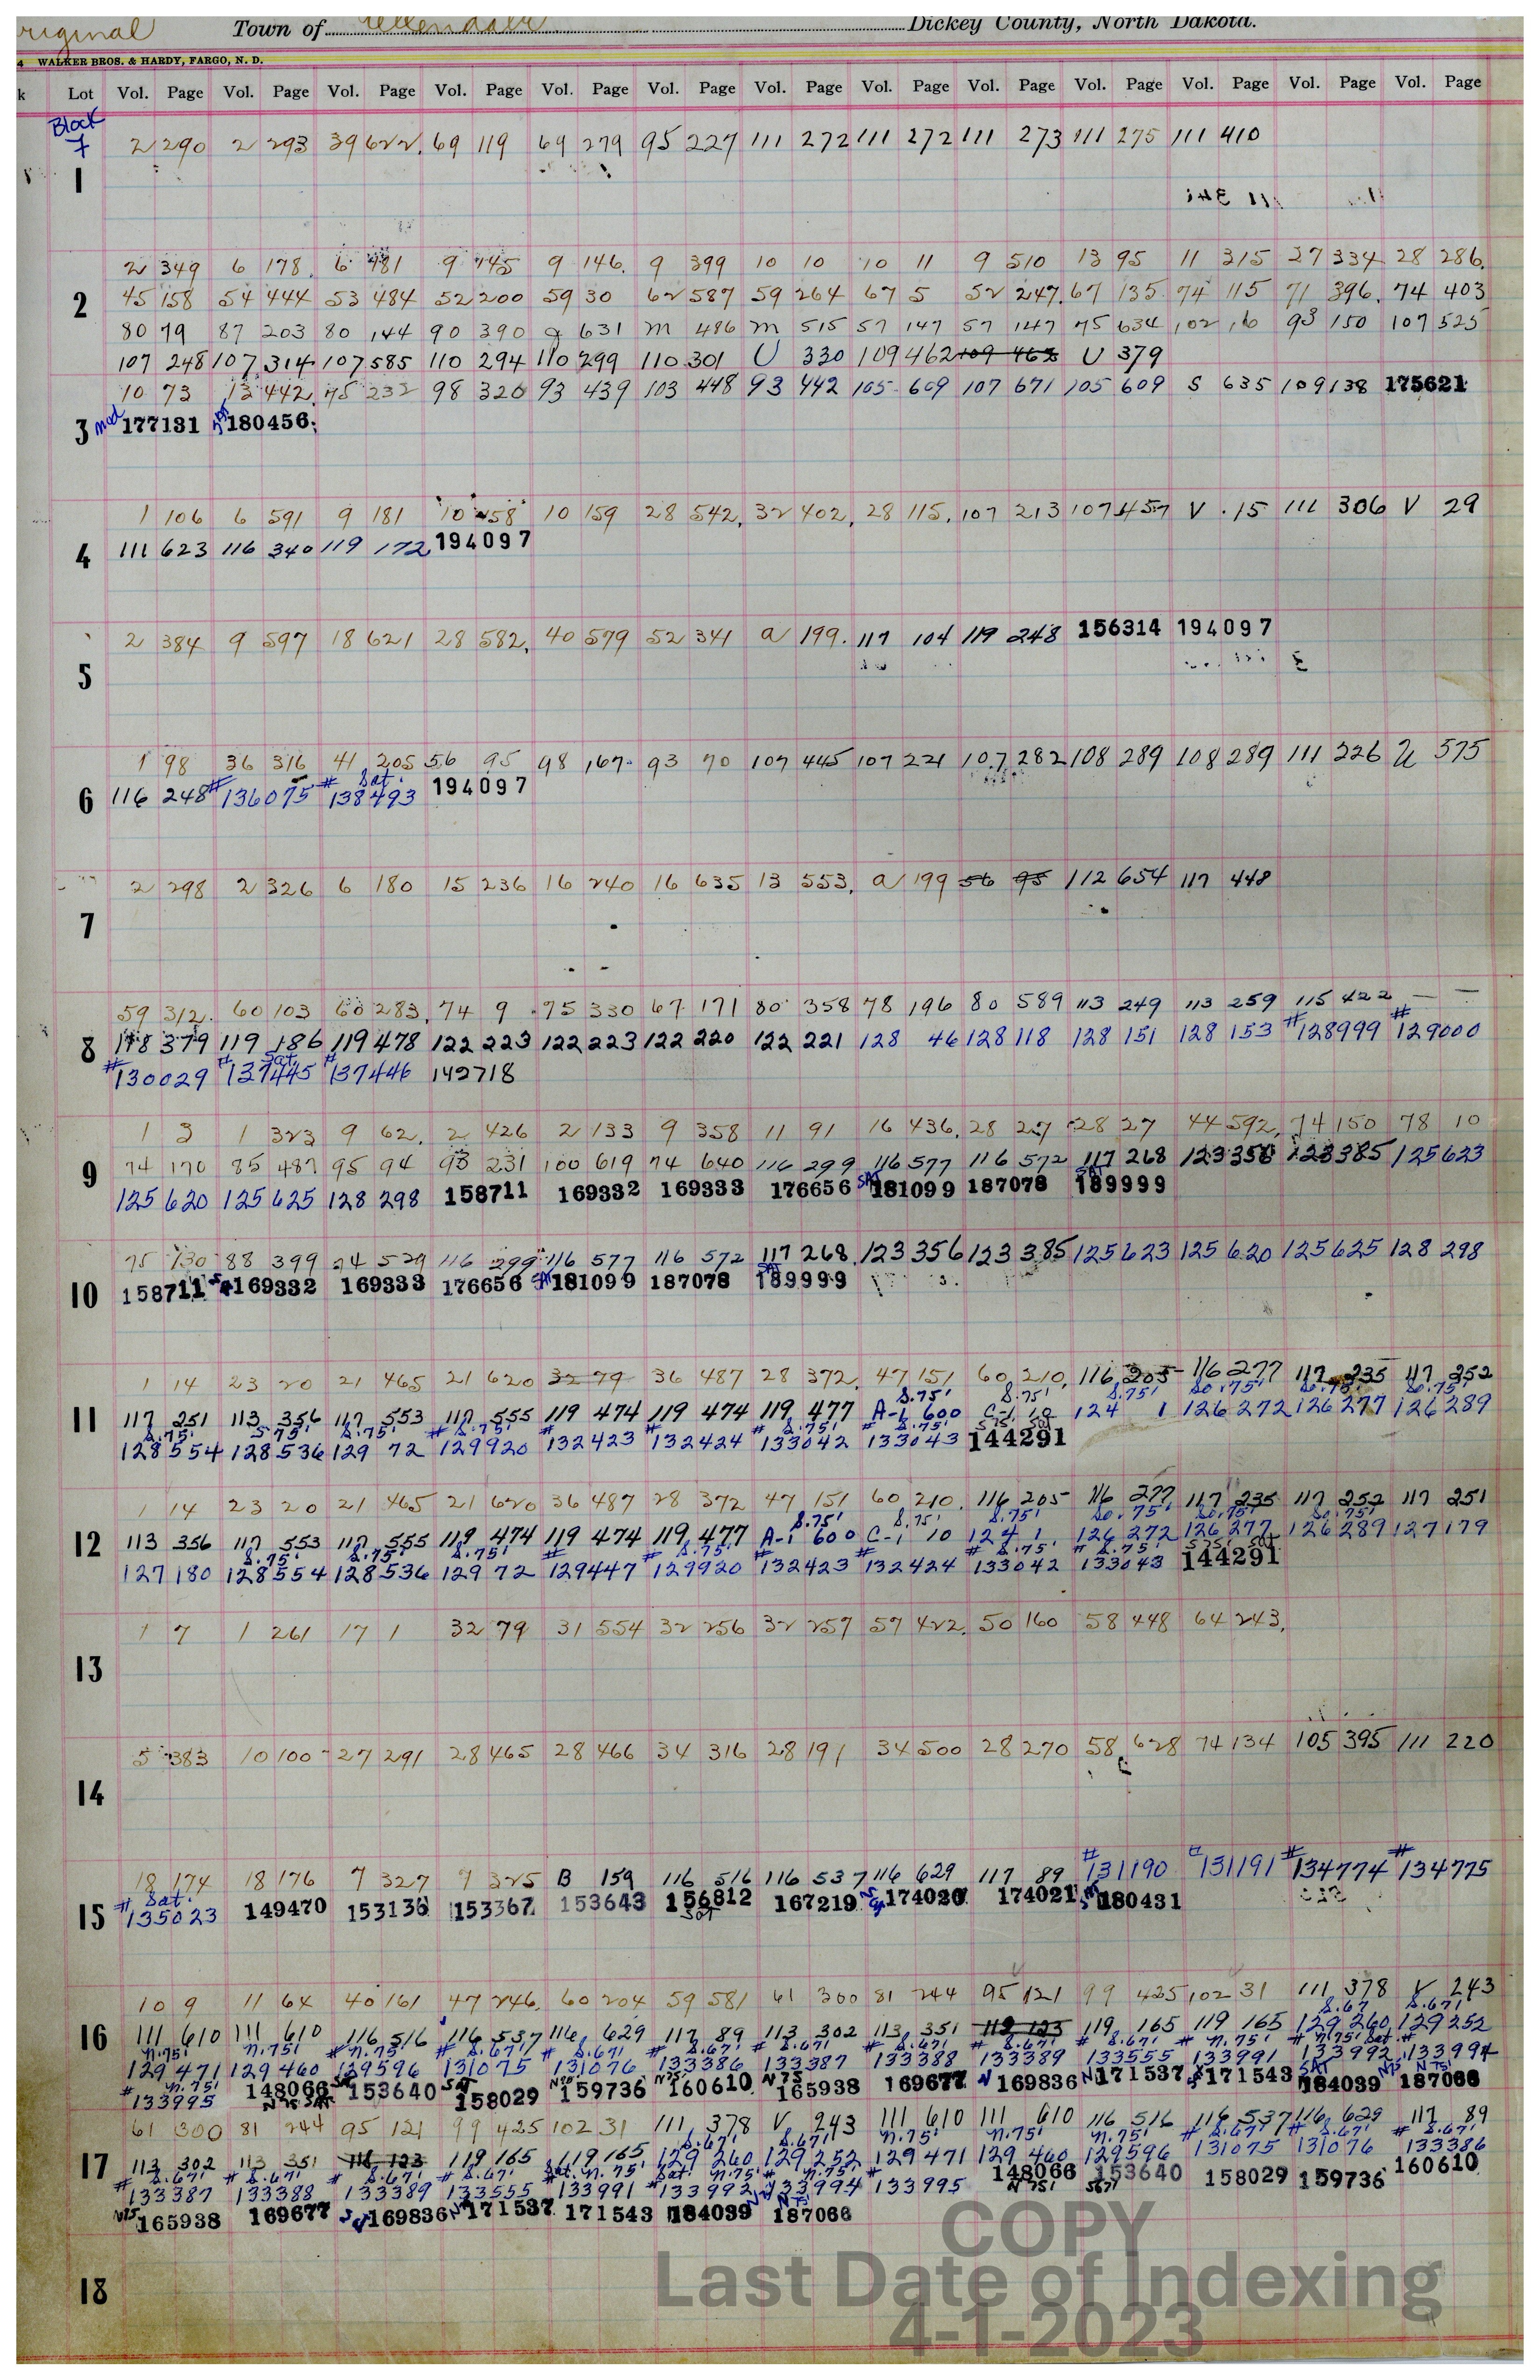 riginal Town of Ellendale Dickey County, North Dakota.
4 WALKER BROS. & HARDY, FARGO, N. D.
k Lot Vol. Page Vol. Page Vol. Page Vol. Page Vol. Page Vol. Page Vol. Page Vol. Page Vol. Page Vol. Page Vol. Page Vol. Page Vol. Page
Block
7 2 290 2 293 39 622. 69 119 69 279 95 227 111 272 111 272 111 273 111 275 111 410
1
2 349 6 178. 6 481 9 145 9 146. 9 399 10 10 10 11 9 510 13 95 11 315 27 334 28 286.
2 45 158 54 444 53 484 52 200 59 30 62 587 59 264 67 5 52 247. 67 135 74 115 71 396. 74 403
80 79 87 203 80 144 90 390 631 m 486 m 515 57 147 57 147 75 634 102 16 93 150 107 525
107 248 107 314 107 585 110 294 110 299 110 301 U 330 109 462 109 462 U 379
10 73 13 442. 75 232 98 320 93 439 103 448 93 442 105 609 107 671 105 609 S 635 109 138 175621
3 mod 177131 180456
1 106 6 591 9 181 10 158 10 159 28 542. 32 402. 28 115. 107 213 107 457 V 15 111 306 V 29
4 111 623 116 340 119 172 194097
2 384 9 597 18 621 28 582. 40 579 52 341 a 199. 117 104 119 248 156314 194097
5
1 98 36 316 41 205 56 95 98 167. 93 70 107 445 107 221 107 282 108 289 108 289 111 226 U 575
# # Sat.
6 116 248 136075 138493 194097
2 298 2 326 6 180 15 236 16 240 16 635 13 553. a 199 56 95 112 654 117 448
7
59 312. 60 103 60 283. 74 9 75 330 67 171 80 358 78 196 80 589 113 249 113 259 115 422 — —
8 118 379 119 186 119 478 122 223 122 223 122 220 122 221 128 46 128 118 128 151 128 153 #128999 #129000
#130029 #137445 Sat. #137446 142718
1 3 1 323 9 62. 2 426 2 133 9 358 11 91 16 436. 28 27 28 27 44 592. 74 150 78 10
9 74 170 85 487 95 94 93 231 100 619 74 640 116 299 116 577 116 572 117 268 123 356 123 385 125 623
125 620 125 625 128 298 158711 169332 169333 176656 SAT 181099 187078 SAT 189999
75 130 88 399 74 529 116 299 116 577 116 572 117 268 123 356 123 385 125 623 125 620 125 625 128 298
10 158711 169332 169333 176656 SAT 181099 187078 SAT 189999
1 14 23 20 21 465 21 620 32 79 36 487 28 372. 47 151 60 210. 116 205 116 277 117 235 117 252
S.75' S.75' S.75' So.75' So.75' So.75'
11 117 251 113 356 117 553 117 555 119 474 119 474 119 477 A-1 600 C-1 10 124 1 126 272 126 277 126 289
S.75' S.75' S.75' # S.75' # # # S.75' # S.75' S 75' Sat
128 554 128 536 129 72 129920 132423 132424 133042 133043 144291
1 14 23 20 21 465 21 620 36 487 28 372 47 151 60 210. 116 205 116 277 117 235 117 252 117 251
S.75' S.75' S.75' So.75' So.75' So.75'
12 113 356 117 553 117 555 119 474 119 474 119 477 A-1 600 C-1 10 124 1 126 272 126 277 126 289 127 179
S.75' S.75' S.75' # # S.75' # # # S.75' # S.75' S 75' Sat
127 180 128 554 128 536 129 72 129447 129920 132423 132424 133042 133043 144291
1 7 1 261 17 1 32 79 31 554 32 256 32 257 57 422. 50 160 58 448 64 243.
13
5 383 10 100 27 291 28 465 28 466 34 316 28 191 34 500 28 270 58 628 74 134 105 395 111 220
14
18 174 18 176 7 327 9 325 B 159 116 516 116 537 116 629 117 89 #131190 #131191 #134774 #134775
# Sat.
15 135023 149470 153136 153367 153643 156812 167219 174020 174021 180431
SAT
10 9 11 64 40 161 47 246. 60 204 59 581 61 300 81 244 95 121 99 425 102 31 111 378 V 243
S.67 S.67'
16 111 610 111 610 116 516 116 537 116 629 117 89 113 302 113 351 119 123 119 165 119 165 129 260 129 252
n.75' n.75' # n.75' # S.67' # S.67' # S.67' # S.67' # S.67' # S.67' # S.67' # n.75' # n.75' Sat. #
129 471 129 460 129596 131075 131076 133386 133387 133388 133389 133555 133991 133992 133994
# n.75' 133995 148066 153640 158029 159736 160610 165938 169677 169836 171537 171543 184039 187066
61 300 81 244 95 121 99 425 102 31 111 378 V 243 111 610 111 610 116 516 116 537 116 629 117 89
S.67' S.67' n.75' n.75' n.75' # S.67' # S.67' # S.67'
17 113 302 113 351 116 123 119 165 119 165 129 260 129 252 129 471 129 460 129596 131075 131076 133386
# S.67' # S.67' # S.67' # S.67' Sat. n.75' Sat. n.75' # n.75' # 148066 153640 158029 159736 160610
133387 133388 133389 133555 133991 133992 133994 133995 N 75' S67'
N75 165938 169677 169836 171537 171543 184039 187066
18
COPY
Last Date of Indexing
4-1-2023